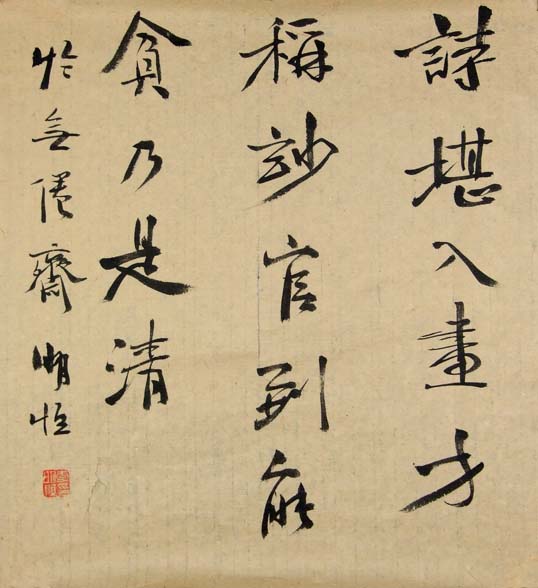 詩堪入畫方
稱玅官到能
貧乃是清
於無倦齋 恒